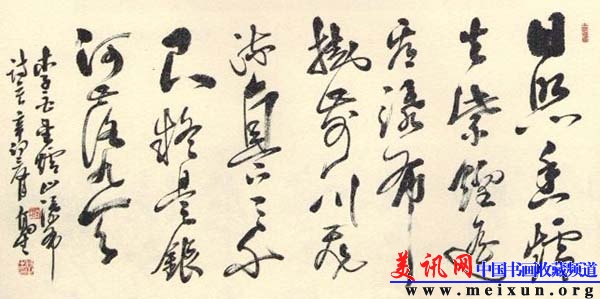 日照香爐
生紫煙遙
看瀑布
掛前川飛
流直下三千
尺疑是銀
河落九天
李白望廬山瀑布
詩 辛卯
美讯网 中国书画收藏频道
www.meixun.org